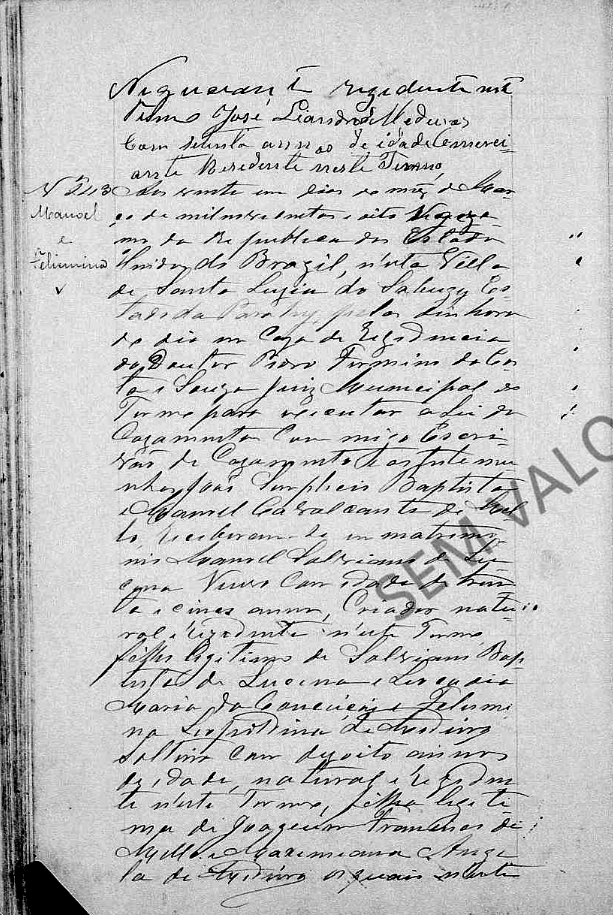 Negociante residente neste
Termo José Liandro de Medeiros
com setenta annos de idade Comerci-
ante Residente neste Termo,
Nº 213
Manoel
e
Felismina
Aos vinte um dias do mêz de Mar-
ço de mil oito centos e oito
da Republica dos Estados
Unidos do Brazil, n'esta Villa
de Santa Luzia do Sabugy Es-
tado da Parahyba, pelas hora
do dia na Caza de Rezidencia
do Doutor Pedro Firmino da Cos-
ta e Souza Juiz Municipal do
Termo para executar a Lei do
Cazamento Commigo Escri-
vão de Cazamento e as testemu-
nhas João Simplicio Baptista
e Manoel Cavalcante de
Receberam-se em matrimo-
nio Manoel Salviano de Lu-
cena Viuvo Com idade de trin-
ta e cinco annos, Criador natu-
ral e rezidente n'este Termo
filho legitimo de Salviano Bap-
tista de Lucena e Leocadia
Maria da Conceição e Felismi-
na Leopoldina de Medeiros
Solteira com dezoito annos
de idade, natural e reziden-
te n'este Termo, filha legiti-
ma de Joaquim Francisco de
Mello e Maximiana Ange-
la de Medeiros os quais neste
SEM VALO